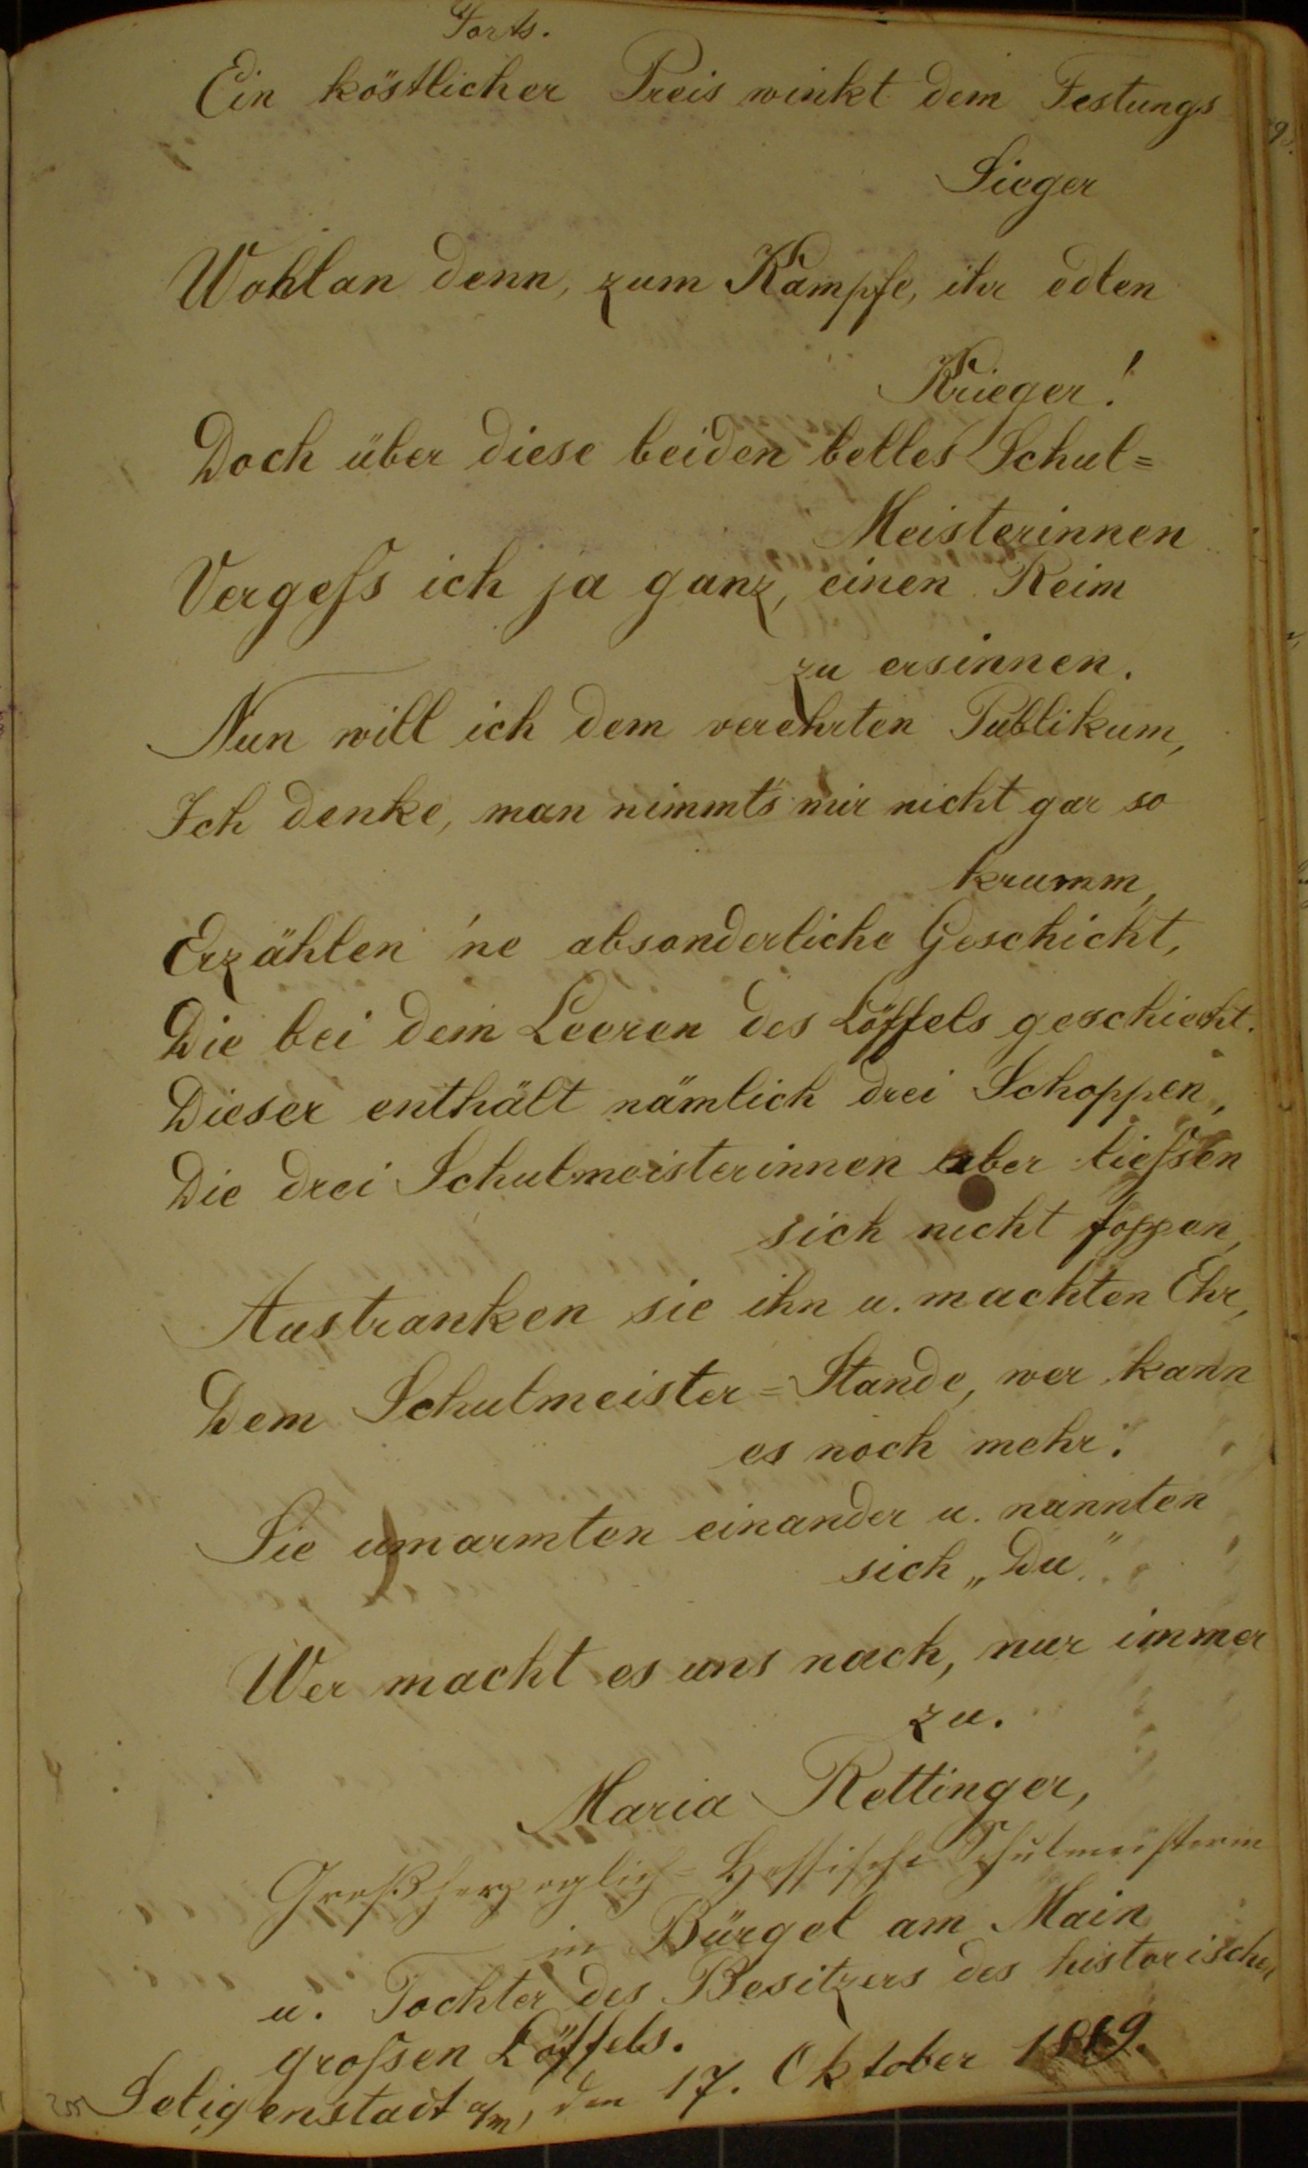 Forts.
Ein köstlicher Preis winkt dem Festungs
Sieger
Wohlan denn, zum Kampfe, ihr edlen
Krieger!
Doch über diese beiden belles Schul=
Meisterinnen
Vergeſs ich ja ganz, einen Reim
zu ersinnen.
Nun will ich dem verehrten Publikum,
Ich denke, man nimmt's mir nicht gar so
krumm,
Erzählen 'ne absonderliche Geschicht,
Die bei dem Leeren des Löffels geschiecht.
Dieser enthält nämlich drei Schoppen,
Die drei Schulmeisterinnen aber lieſsen
sich nicht foppen,
Austranken sie ihn u. machten Ehr,
Dem Schulmeister=Stande, wer kann
es noch mehr.
Sie umarmten einander u. nannten
sich „Du".
Wer macht es uns nach, nur immer
zu.
Maria Rettinger,
Großherzoglich-Hessische Schulmeisterin
in Bürgel am Main
u. Tochter des Besitzers des historischen
groſsen Löffels.
Seligenstadt a/m, den 17. Oktober